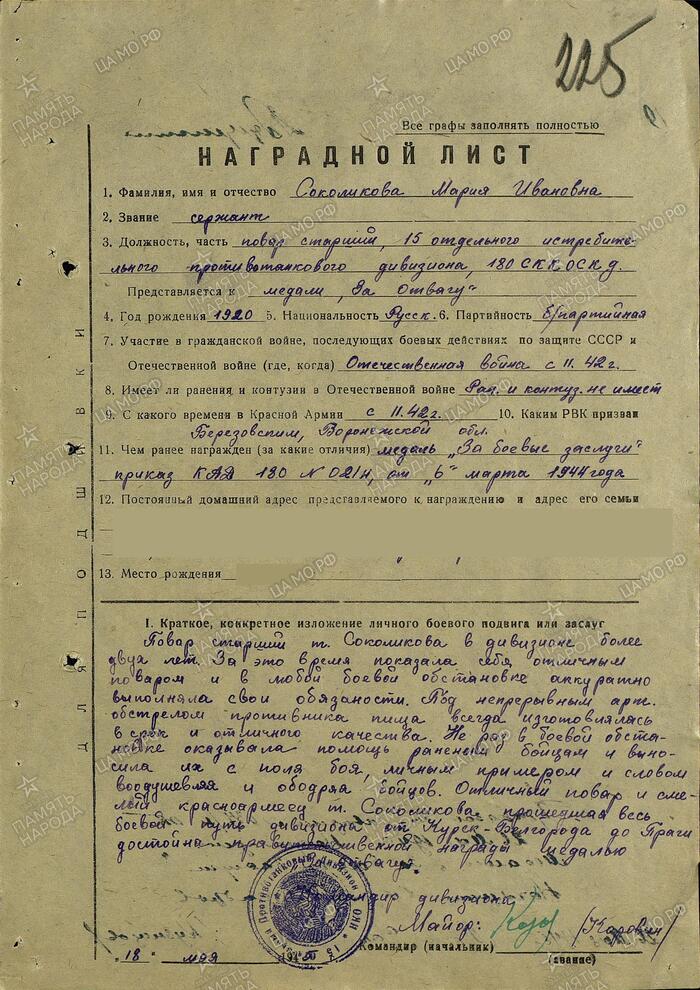 225
Все графы заполнять полностью
НАГРАДНОЙ ЛИСТ
1. Фамилия, имя и отчество Соколикова Мария Ивановна
2. Звание сержант
3. Должность, часть повар старший, 15 отдельного истребите-
льного противотанкового дивизиона, 180 СККОСК д.
Представляется к медали „За Отвагу"
4. Год рождения 1920 5. Национальность Русск. 6. Партийность б/партийная
7. Участие в гражданской войне, последующих боевых действиях по защите СССР и
Отечественной войне (где, когда) Отечественная война с 11.42г.
8. Имеет ли ранения и контузии в Отечественной войне Ран. и контуз. не имеет
9. С какого времени в Красной Армии с 11.42г. 10. Каким РВК призван
Березовским, Воронежской обл.
11. Чем ранее награжден (за какие отличия) медаль „За боевые заслуги"
приказ КАД 180 № 021/н, от „6" марта 1944 года
12. Постоянный домашний адрес представляемого к награждению и адрес его семьи
13. Место рождения
I. Краткое, конкретное изложение личного боевого подвига или заслуг
Повар старший т. Соколикова в дивизионе более
двух лет. За это время показала себя отличным
поваром и в любой боевой обстановке аккуратно
выполняла свои обязаности. Под непрерывным арт.
обстрелом противника пища всегда изготовлялась
в срок и отличного качества. Не раз в боевой обста-
новке оказывала помощь раненым бойцам и выно-
сила их с поля боя, личным примером и словом
воодушевляя и ободряя бойцов. Отличный повар и сме-
лый красноармеец т. Соколикова, прошедшая весь
боевой путь дивизиона от Курск-Белгорода до Праги
достойна правительственной награды медалью
Отвагу".
Командир дивизиона
Майор:
Командир (начальник)
(звание)
„18" мая 194
для подшивки
Противотанковый дивизион
ПАМЯТЬ НАРОДА
ЦАМО.РФ